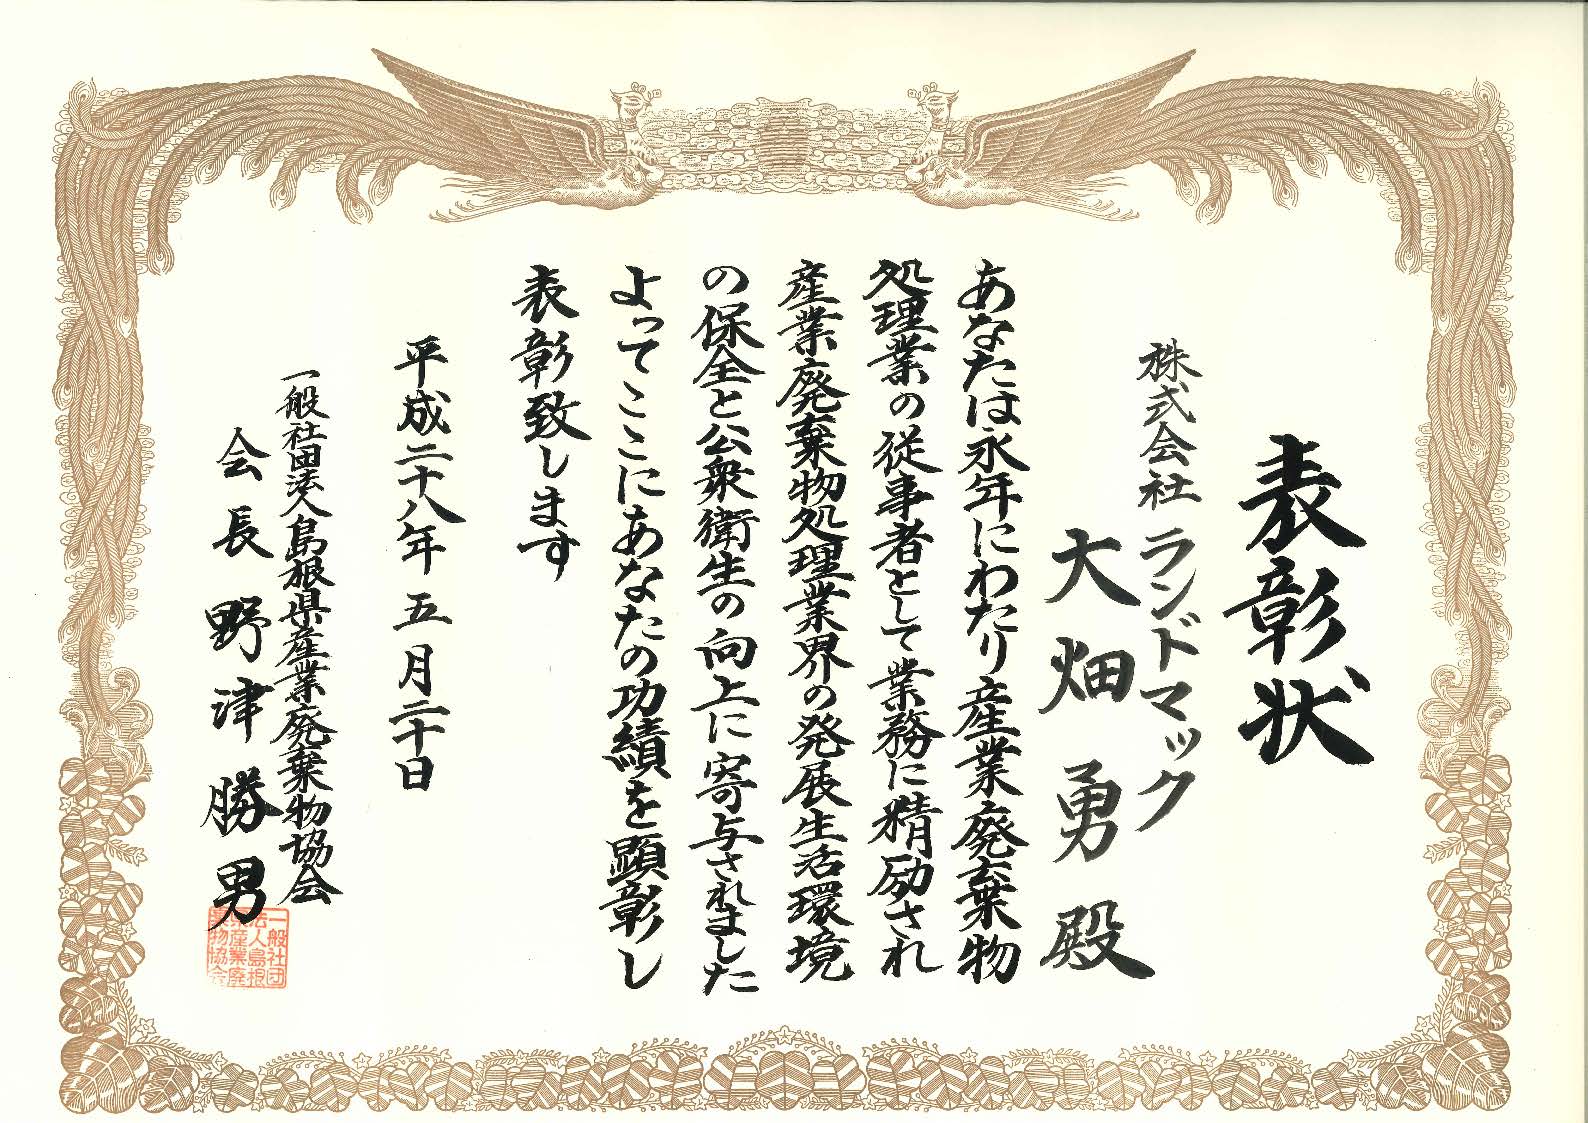 表彰状
株式会社ランドマック
大畑勇殿
あなたは永年にわたり産業廃棄物
処理業の従事者として業務に精励され
産業廃棄物処理業界の発展生活環境
の保全と公衆衛生の向上に寄与されました
よってここにあなたの功績を顕彰し
表彰致します
平成二十八年五月二十日
一般社団法人島根県産業廃棄物協会
会長野津勝男
一般社団
法人島根
県産業廃
棄物協会